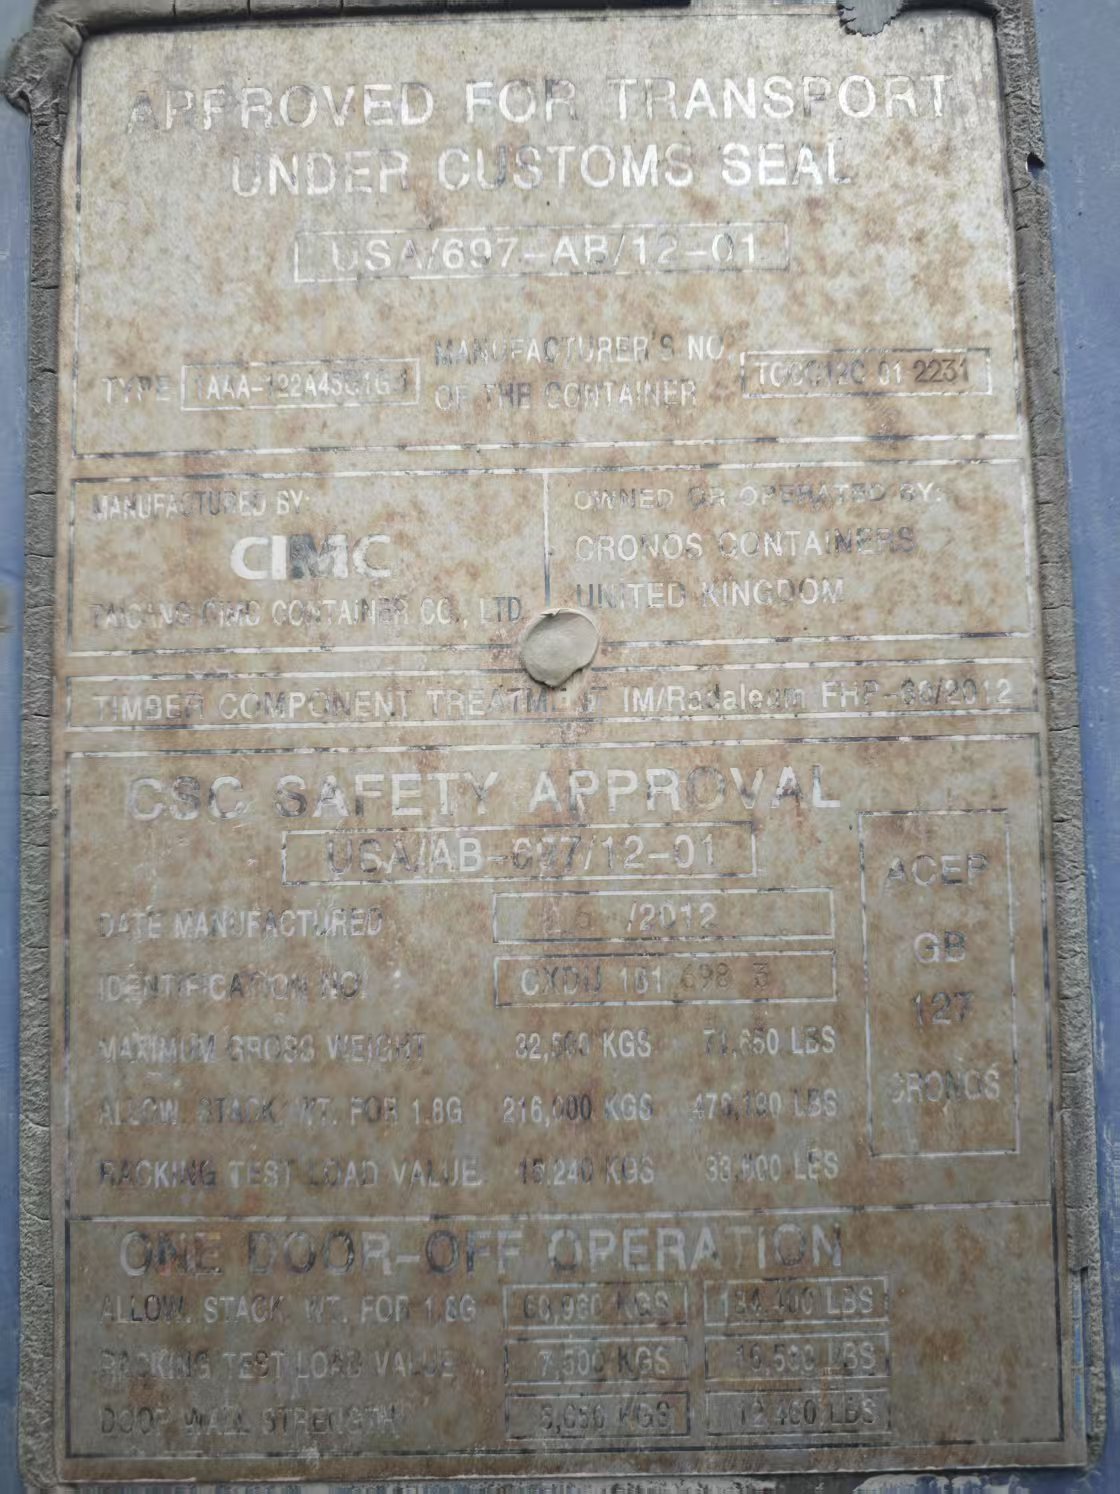 APPROVED FOR TRANSPORT
UNDER CUSTOMS SEAL
USA/697-AB/12-01
MANUFACTURER'S NO.
TYPE
OF THE CONTAINER
01 2231
MANUFACTURED BY:
OWNED OR OPERATED BY:
CIMC
CRONOS CONTAINERS
TAICANG CIMC CONTAINER CO., LTD
UNITED KINGDOM
TIMBER COMPONENT TREATMENT IM/Radaleum
CSC SAFETY APPROVAL
USA/AB-697/12-01
ACEP
DATE MANUFACTURED /2012
GB
IDENTIFICATION NO. CXDU 161 698 3
127
MAXIMUM GROSS WEIGHT 32,500 KGS 71,650 LBS
CRONOS
ALLOW. STACK. WT. FOR 1.8G 216,000 KGS 476,190 LBS
RACKING TEST LOAD VALUE 15,240 KGS 33,600 LBS
ONE DOOR-OFF OPERATION
ALLOW. STACK. WT. FOR 1.8G KGS LBS
RACKING TEST LOAD VALUE 7,500 KGS LBS
DOOR WALL STRENGTH KGS LBS